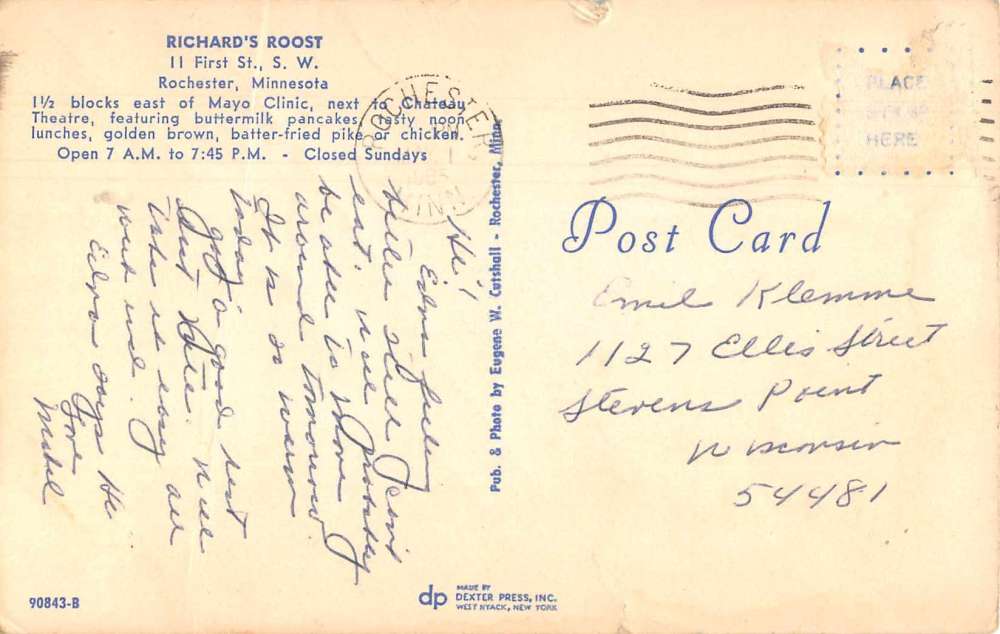 RICHARD'S ROOST
11 First St., S. W.
Rochester, Minnesota
1½ blocks east of Mayo Clinic, next to Chateau
Theatre, featuring buttermilk pancakes, tasty noon
lunches, golden brown, batter-fried pike or chicken.
Open 7 A.M. to 7:45 P.M. - Closed Sundays
ROCHESTER
MINN
PLACE
STAMP
HERE
Post Card
Emil Klemme
1127 Ellis Street
Stevens Point
Wisconsin
54481
Hi!
Edna feeling
better still can't
eat. will probably
be able to move
around tomorrow.
It is so warm
today.
got a good rest
last nite. will
take it easy all
week end.
says He
Love
Mabel
Pub. & Photo by Eugene W. Cutshall - Rochester, Minn.
90843-B
dp
MADE BY
DEXTER PRESS, INC.
WEST NYACK, NEW YORK